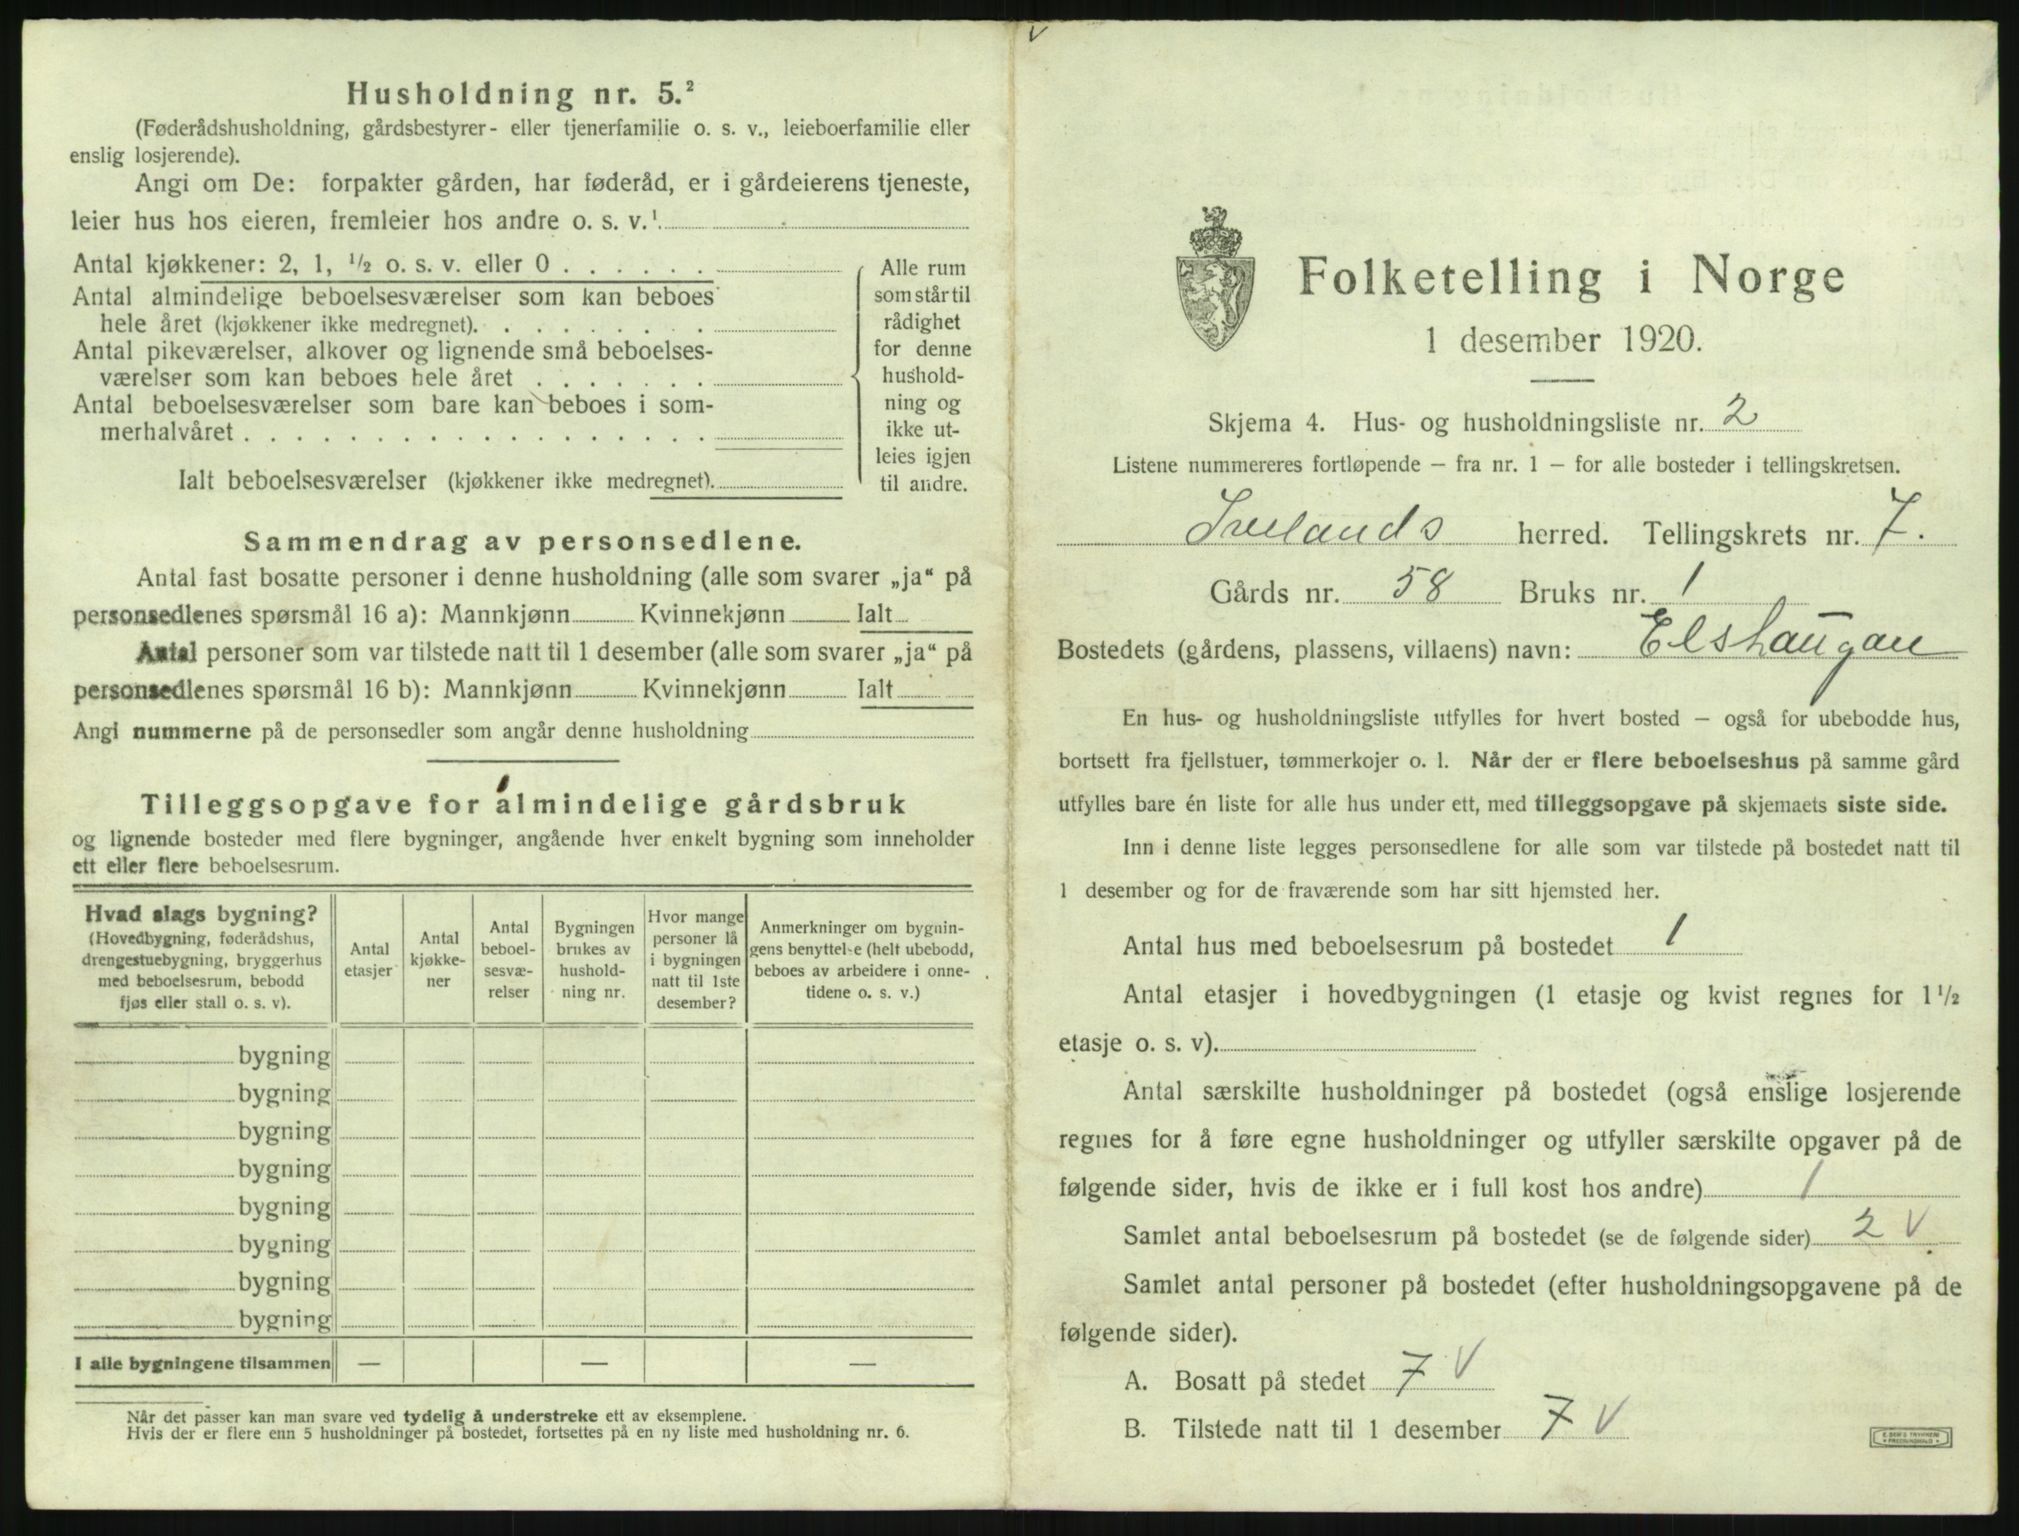 Husholdning nr. 5.²
(Føderådshusholdning, gårdsbestyrer- eller tjenerfamilie o. s. v., leieboerfamilie eller
enslig losjerende).
Angi om De: forpakter gården, har føderåd, er i gårdeierens tjeneste,
leier hus hos eieren, fremleier hos andre o. s. v.¹
Antal kjøkkener: 2, 1, ½ o. s. v. eller 0 . . . . . .
Antal almindelige beboelsesværelser som kan beboes
hele året (kjøkkener ikke medregnet). . . . . . . . .
Antal pikeværelser, alkover og lignende små beboelses-
værelser som kan beboes hele året . . . . . . .
Antal beboelsesværelser som bare kan beboes i som-
merhalvåret . . . . . . . . . . . . . . . . . .
Ialt beboelsesværelser (kjøkkener ikke medregnet).
Alle rum
som står til
rådighet
for denne
hushold-
ning og
ikke ut-
leies igjen
til andre.
Sammendrag av personsedlene.
Antal fast bosatte personer i denne husholdning (alle som svarer „ja“ på
personsedlenes spørsmål 16 a): Mannkjønn Kvinnekjønn Ialt
Antal personer som var tilstede natt til 1 desember (alle som svarer „ja“ på
personsedlenes spørsmål 16 b): Mannkjønn Kvinnekjønn Ialt
Angi nummerne på de personsedler som angår denne husholdning
Tilleggsopgave for almindelige gårdsbruk
og lignende bosteder med flere bygninger, angående hver enkelt bygning som inneholder
ett eller flere beboelsesrum.
Hvad slags bygning?
(Hovedbygning, føderådshus,
drengestuebygning, bryggerhus
med beboelsesrum, bebodd
fjøs eller stall o. s. v).
Antal
etasjer
Antal
kjøkke-
ner
Antal
beboel-
sesvæ-
relser
Bygningen
brukes av
hushold-
ning nr.
Hvor mange
personer lå
i bygningen
natt til 1ste
desember?
Anmerkninger om bygnin-
gens benyttelse (helt ubebodd,
beboes av arbeidere i onne-
tidene o. s. v.)
bygning
bygning
bygning
bygning
bygning
bygning
bygning
bygning
I alle bygningene tilsammen — — —
Når det passer kan man svare ved tydelig å understreke ett av eksemplene.
Hvis der er flere enn 5 husholdninger på bostedet, fortsettes på en ny liste med husholdning nr. 6.
Folketelling i Norge
1 desember 1920.
Skjema 4. Hus- og husholdningsliste nr. 2
Listene nummereres fortløpende – fra nr. 1 – for alle bosteder i tellingskretsen.
Ivelands herred. Tellingskrets nr. 7.
Gårds nr. 58 Bruks nr. 1
Bostedets (gårdens, plassens, villaens) navn: Elshaugan
En hus- og husholdningsliste utfylles for hvert bosted – også for ubebodde hus,
bortsett fra fjellstuer, tømmerkojer o. l. Når der er flere beboelseshus på samme gård
utfylles bare én liste for alle hus under ett, med tilleggsopgave på skjemaets siste side.
Inn i denne liste legges personsedlene for alle som var tilstede på bostedet natt til
1 desember og for de fraværende som har sitt hjemsted her.
Antal hus med beboelsesrum på bostedet 1
Antal etasjer i hovedbygningen (1 etasje og kvist regnes for 1½
etasje o. s. v).
Antal særskilte husholdninger på bostedet (også enslige losjerende
regnes for å føre egne husholdninger og utfyller særskilte opgaver på de
følgende sider, hvis de ikke er i full kost hos andre) 1
Samlet antal beboelsesrum på bostedet (se de følgende sider) 2 V
Samlet antal personer på bostedet (efter husholdningsopgavene på de
følgende sider).
A. Bosatt på stedet 7 V
B. Tilstede natt til 1 desember 7 V